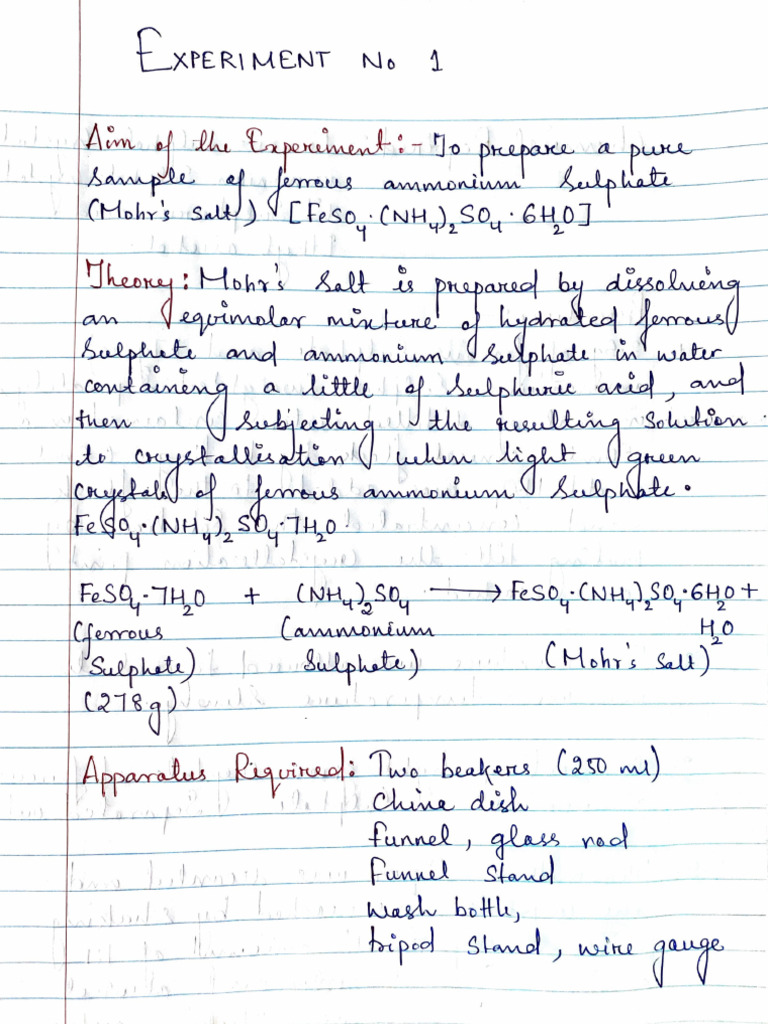 EXPERIMENT No 1
Aim of the Experiment:- To prepare a pure
sample of ferrous ammonium sulphate
(Mohr's salt) [FeSO₄·(NH₄)₂SO₄·6H₂O]
Theory: Mohr's salt is prepared by dissolving
an equimolar mixture of hydrated ferrous
sulphate and ammonium sulphate in water
containing a little of sulphuric acid, and
then subjecting the resulting solution
to crystallisation when light green
crystals of ferrous ammonium sulphate.
FeSO₄·(NH₄)₂SO₄·7H₂O.
FeSO₄·7H₂O + (NH₄)₂SO₄ ⟶ FeSO₄·(NH₄)₂SO₄·6H₂O +
(ferrous (ammonium H₂O
sulphate) sulphate) (Mohr's salt)
(278g)
Apparatus Required: Two beakers (250 ml)
China dish
funnel, glass rod
Funnel stand
wash bottle,
tripod stand, wire gauge